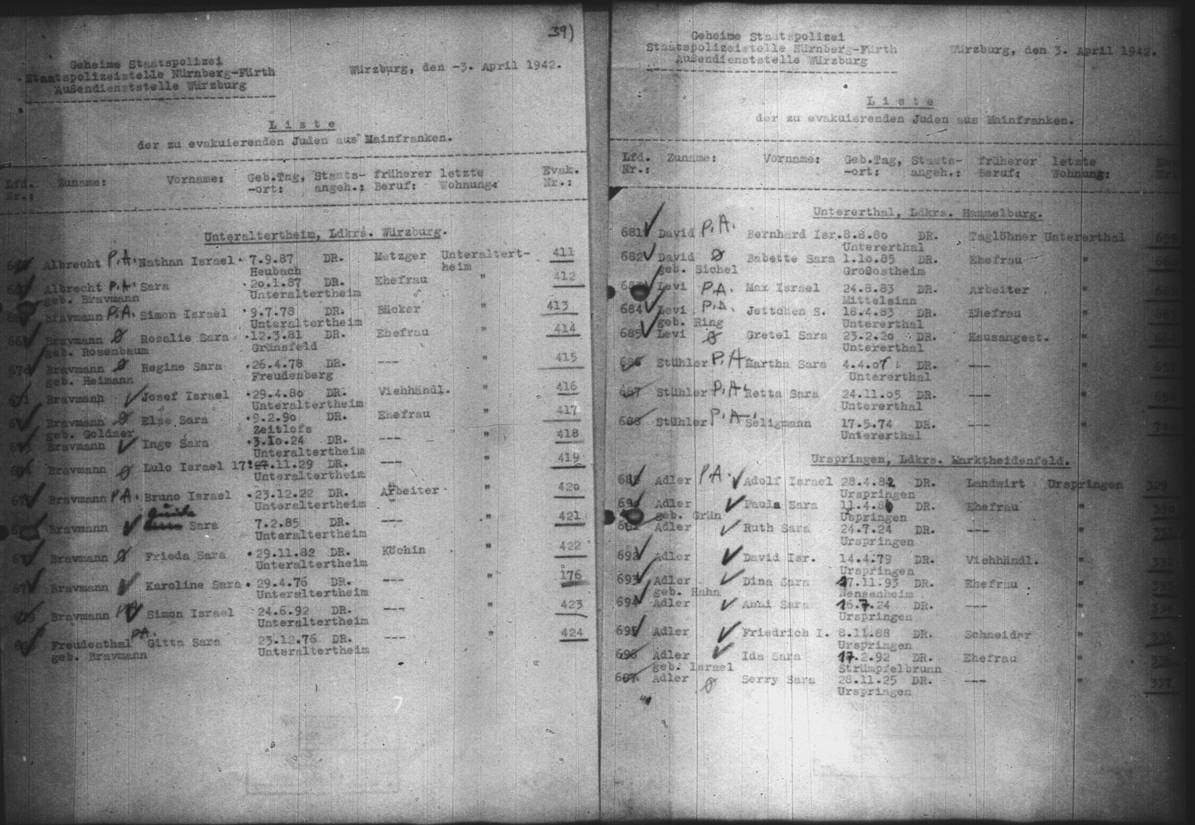 39)
Geheime Staatspolizei
Staatspolizeistelle Nürnberg-Fürth
Außendienststelle Würzburg
Würzburg, den -3. April 1942.
Liste
der zu evakuierenden Juden aus Mainfranken.
Lfd. Nr.: Zuname: Vorname: Geb.Tag, -ort: Staats-angeh.: früherer Beruf: letzte Wohnung: Evak. Nr.:
Unteraltertheim, Ldkrs. Würzburg.
Albrecht P.A. Nathan Israel 7.9.87 DR. Metzger Unteraltert- 411
Heubach heim
Albrecht P.A. Sara 20.1.87 DR. Ehefrau " 412
geb. Bravmann Unteraltertheim
Bravmann P.A. Simon Israel 9.7.78 DR. Bäcker " 413
Unteraltertheim
Bravmann Ø Rosalie Sara 12.3.81 DR. Ehefrau " 414
geb. Rosenbaum Grünsfeld
Bravmann Ø Regine Sara 26.4.78 DR. --- " 415
geb. Heimann Freudenberg
Bravmann Josef Israel 29.4.80 DR. Viehhändl. " 416
Unteraltertheim
Bravmann Ø Else Sara 9.2.90 DR. Ehefrau " 417
geb. Goldner Zeitlofs
Bravmann Inge Sara 3.10.24 DR. --- " 418
Unteraltertheim
Bravmann Ø Lulo Israel .11.29 DR. --- " 419
Unteraltertheim
Bravmann P.A. Bruno Israel 23.12.22 DR. Arbeiter " 420
Unteraltertheim
Bravmann Sara 7.2.85 DR. --- " 421
Unteraltertheim
Bravmann Ø Frieda Sara 29.11.82 DR. Köchin " 422
Unteraltertheim
Bravmann Karoline Sara 29.4.76 DR. --- " 176
Unteraltertheim
Bravmann Simon Israel 24.6.92 DR. --- " 423
Unteraltertheim
Freudenthal P.A. Gitta Sara 23.12.76 DR. --- " 424
geb. Bravmann Unteraltertheim
Geheime Staatspolizei
Staatspolizeistelle Nürnberg-Fürth
Außendienststelle Würzburg
Würzburg, den 3. April 1942.
Liste
der zu evakuierenden Juden aus Mainfranken.
Lfd. Nr.: Zuname: Vorname: Geb.Tag, -ort: Staats-angeh.: früherer Beruf: letzte Wohnung:
Untererthal, Ldkrs. Hammelburg.
681 David P.A. Bernhard Isr. 8.8.80 DR. Taglöhner Untererthal
Untererthal
682 David Ø Babette Sara 1.10.85 DR. Ehefrau "
geb. Sichel Großostheim
Levi P.A. Max Israel 24.8.83 DR. Arbeiter "
Mittelsinn
684 Levi P.A. Jettchen S. 18.4.83 DR. Ehefrau "
geb. Ring Untererthal
685 Levi Ø Gretel Sara 23.2.20 DR. Hausangest. "
Untererthal
686 Stühler P.A. Martha Sara 4.4.07 DR. --- "
Untererthal
687 Stühler P.A. Retta Sara 24.11.05 DR. --- "
Untererthal
688 Stühler P.A. Seligmann 17.5.74 DR. --- "
Untererthal
Urspringen, Ldkrs. Marktheidenfeld.
Adler P.A. Adolf Israel 28.4.82 DR. Landwirt Urspringen 329
Urspringen
Adler Paula Sara 11.4.8 DR. Ehefrau "
geb. Grün Urspringen
Adler Ruth Sara 24.7.24 DR. --- "
Urspringen
692 Adler David Isr. 14.4.79 DR. Viehhändl. "
Urspringen
693 Adler Dina Sara 27.11.93 DR. Ehefrau "
geb. Hahn Nensenheim
694 Adler Anni Sara 16.7.24 DR. --- "
Urspringen
695 Adler Friedrich I. 8.11.88 DR. Schneider "
Urspringen
696 Adler Ida Sara 17.2.92 DR. Ehefrau "
geb. Israel Strümpfelbrunn
697 Adler Ø Serry Sara 28.11.25 DR. --- " 337
Urspringen